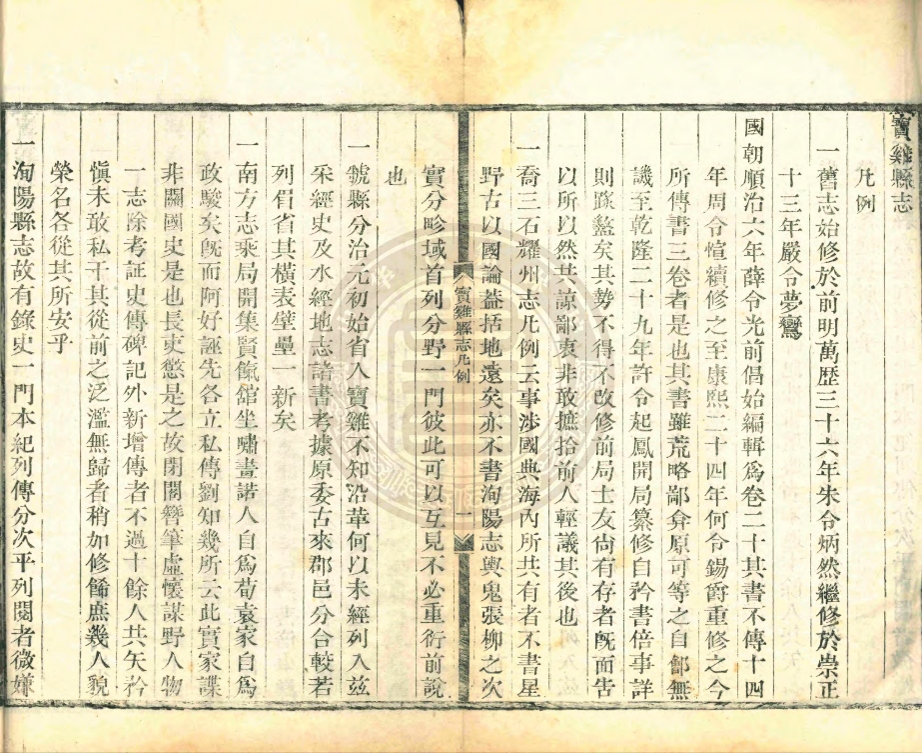 寶雞縣志
凡例
一舊志始修於前明萬歷三十六年朱令炳然繼修於崇正
十三年嚴令夢鸞
國朝順治六年薛令光前倡始編輯爲卷二十其書不傳十四
年周令愃續修之至康熙二十四年何令錫爵重修之今
所傳書三卷者是也其書雖荒略鄙弇原可等之自鄶無
譏至乾隆二十九年許令起鳳開局纂修自矜書倍事詳
則踳盭矣其勢不得不改修前局士友尙有存者旣而吿
以所以然共諒鄙衷非敢摭拾前人輕議其後也
一喬三石耀州志凡例云事涉國典海內所共有者不書星
野古以國論蓋括地遠矣亦不書洵陽志輿鬼張柳之次
實分畛域首列分野一門彼此可以互見不必重衍前說
也
寶雞縣志凡例
一
一虢縣分治元初始省入寶雞不知沿革何以未經列入茲
采經史及水經地志諸書考據原委古來郡邑分合較若
列眉省其橫表壁壘一新矣
一南方志乘局開集賢氣館坐嘯畫諾人自爲荀袁家自爲
政駿矣旣而阿好誣先各立私傳劉知幾所云此實家諜
非關國史是也長吏慾是之故閉閣簪筆虛懷謀野人物
一志除考証史傳碑記外新增傳者不過十餘人共矢矜
愼未敢私于其從前之泛濫無歸者稍加修餙庶幾人貌
榮名各從其所安乎
一洵陽縣志故有錄史一門本紀列傳分次平列閱者微嫌